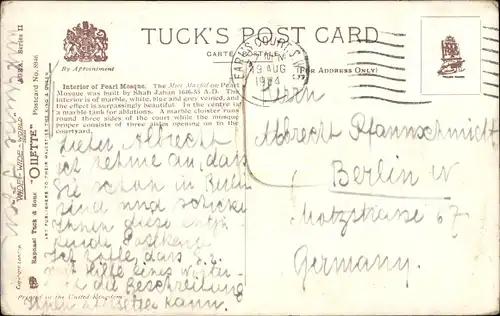 TUCK'S POST CARD
CARTE POSTALE
(FOR ADDRESS ONLY)
By Appointment
EARLS COURT. S.W.5
9 AUG
Interior of Pearl Mosque. The Moti Masjid or Pearl
Mosque was built by Shah Jahan 1648-55 A.D. The
interior is of marble, white, blue and grey veined, and
the effect is surprisingly beautiful. In the centre is
a marble tank for ablutions. A marble cloister runs
round three sides of the court while the mosque
proper consists of three aisles opening on to the
courtyard.
Lieber Albrecht
ich nehme an, daß
Sie schon in Berlin
sind und schicke
Ihnen diese
Postkarte
Ich hoffe, daß S.
mit Hilfe eines Wörter-
buch die Beschreibung
kann.
Herrn
Albrecht Pfannschmidt
Berlin W
Motzstrasse 67
Germany.
Printed in the United Kingdom
Copyright London
Raphael Tuck & Sons' "OILETTE" Postcard No.
PUBLISHERS TO THEIR MAJESTIES THE KING & QUEEN
WIDE-WIDE-WORLD
AGRA. Series II